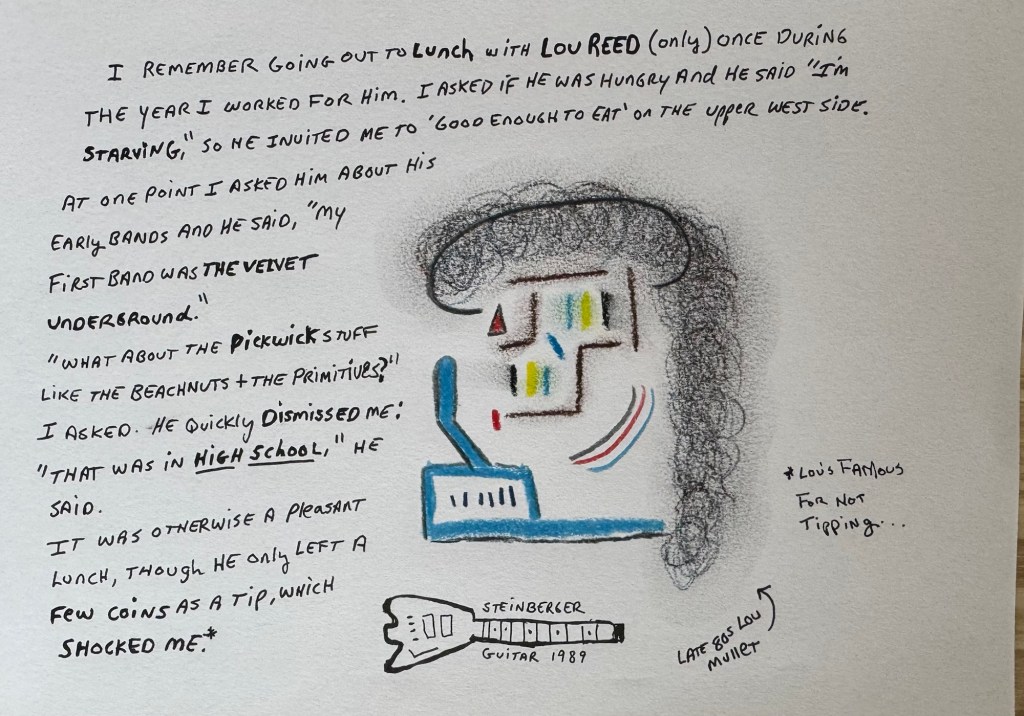 I REMEMBER GOING OUT TO LUNCH WITH LOU REED (ONLY) ONCE DURING
THE YEAR I WORKED FOR HIM. I ASKED IF HE WAS HUNGRY AND HE SAID "I'M
STARVING," SO HE INVITED ME TO 'GOOD ENOUGH TO EAT' ON THE UPPER WEST SIDE.
AT ONE POINT I ASKED HIM ABOUT HIS
EARLY BANDS AND HE SAID, "MY
FIRST BAND WAS THE VELVET
UNDERGROUND."
"WHAT ABOUT THE PICKWICK STUFF
LIKE THE BEACHNUTS + THE PRIMITIVES?"
I ASKED. HE QUICKLY DISMISSED ME:
"THAT WAS IN HIGH SCHOOL," HE
SAID.
IT WAS OTHERWISE A PLEASANT
LUNCH, THOUGH HE ONLY LEFT A
FEW COINS AS A TIP, WHICH
SHOCKED ME.*
*LOU'S FAMOUS
FOR NOT
TIPPING...
STEINBERGER
GUITAR 1989
LATE 80S LOU
MULLET